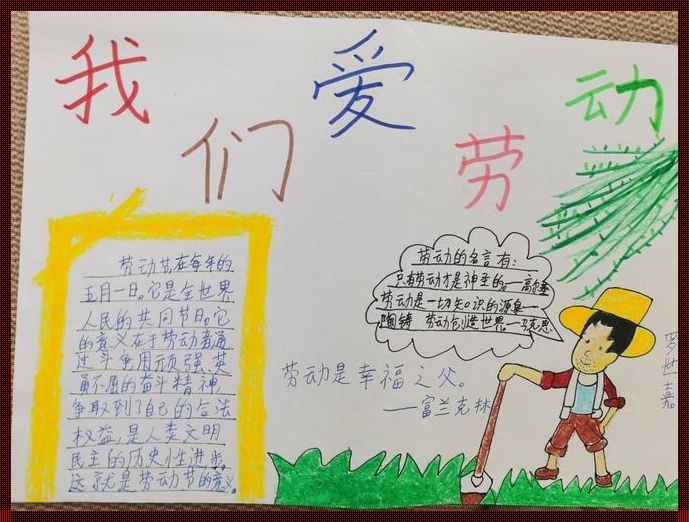 我们爱劳动
劳动节在每年的
五月一日。它是全世界
人民的共同节日。它
的意义在于劳动者通
过斗争用顽强英
勇不屈的奋斗精神
争取到了自己的合法
权益,是人类文明
民主的历史性进步,
这就是劳动节的意义。
劳动的名言有:
只有劳动才是神圣的。—高尔基
劳动是一切知识的源泉
陶铸 劳动创造世界—马克思
劳动是幸福之父。
——富兰克林
罗世嘉